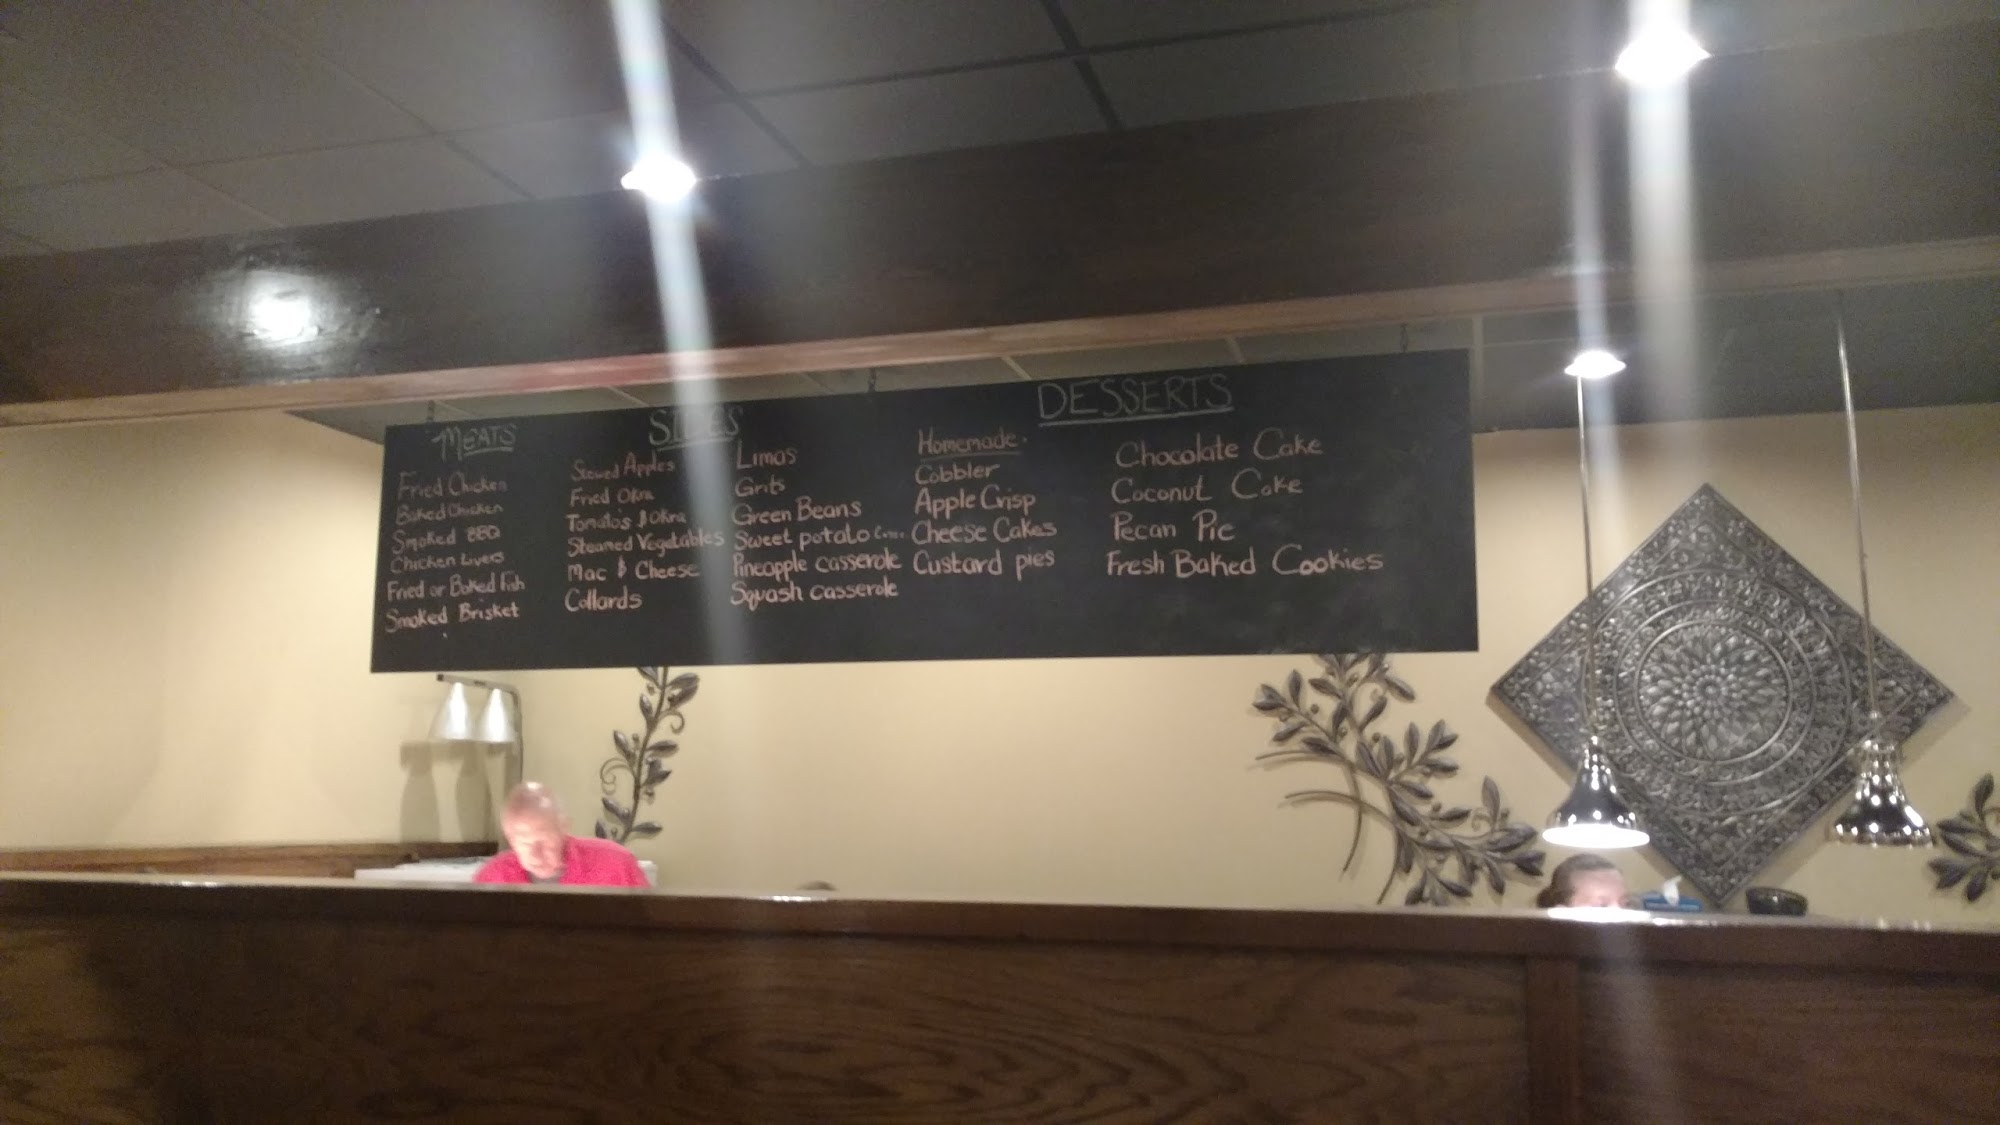 MEATS
Fried Chicken
Baked Chicken
Smoked BBQ
Chicken Livers
Fried or Baked Fish
Smoked Brisket
SIDES
Stewed Apples
Fried Okra
Tomato's & Okra
Steamed Vegetables
Mac & Cheese
Collards
Limas
Grits
Green Beans
Sweet potato
Pineapple casserole
Squash casserole
DESSERTS
Homemade
Cobbler
Apple Crisp
Cheese Cakes
Custard pies
Chocolate Cake
Coconut Cake
Pecan Pie
Fresh Baked Cookies